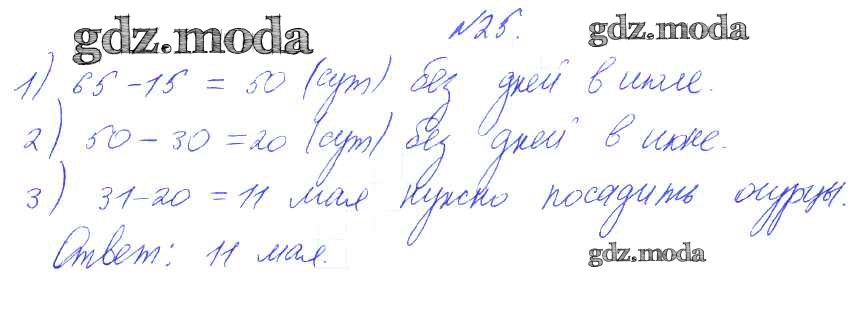 gdz.moda №25. gdz.moda
1) 65-15 = 50 (сут) без дней в июле.
2) 50-30 = 20 (сут) без дней в июне.
3) 31-20 = 11 мая нужно посадить огурцы.
Ответ: 11 мая.
gdz.moda